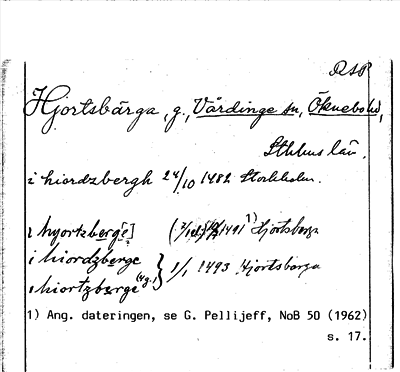 RSP
Hjortsbärga, g., Vårdinge sn, Öknebo hd,
Sthlms län.
i hiordzbergh 24/10 1482 Stockholm.
i hyortzberg[e] 1491 1) Hjortsberga
i hiordzberge
i hiortzberge (4 g.) } 1/1 1493 Hjortsberga
1) Ang. dateringen, se G. Pellijeff, NoB 50 (1962)
s. 17.